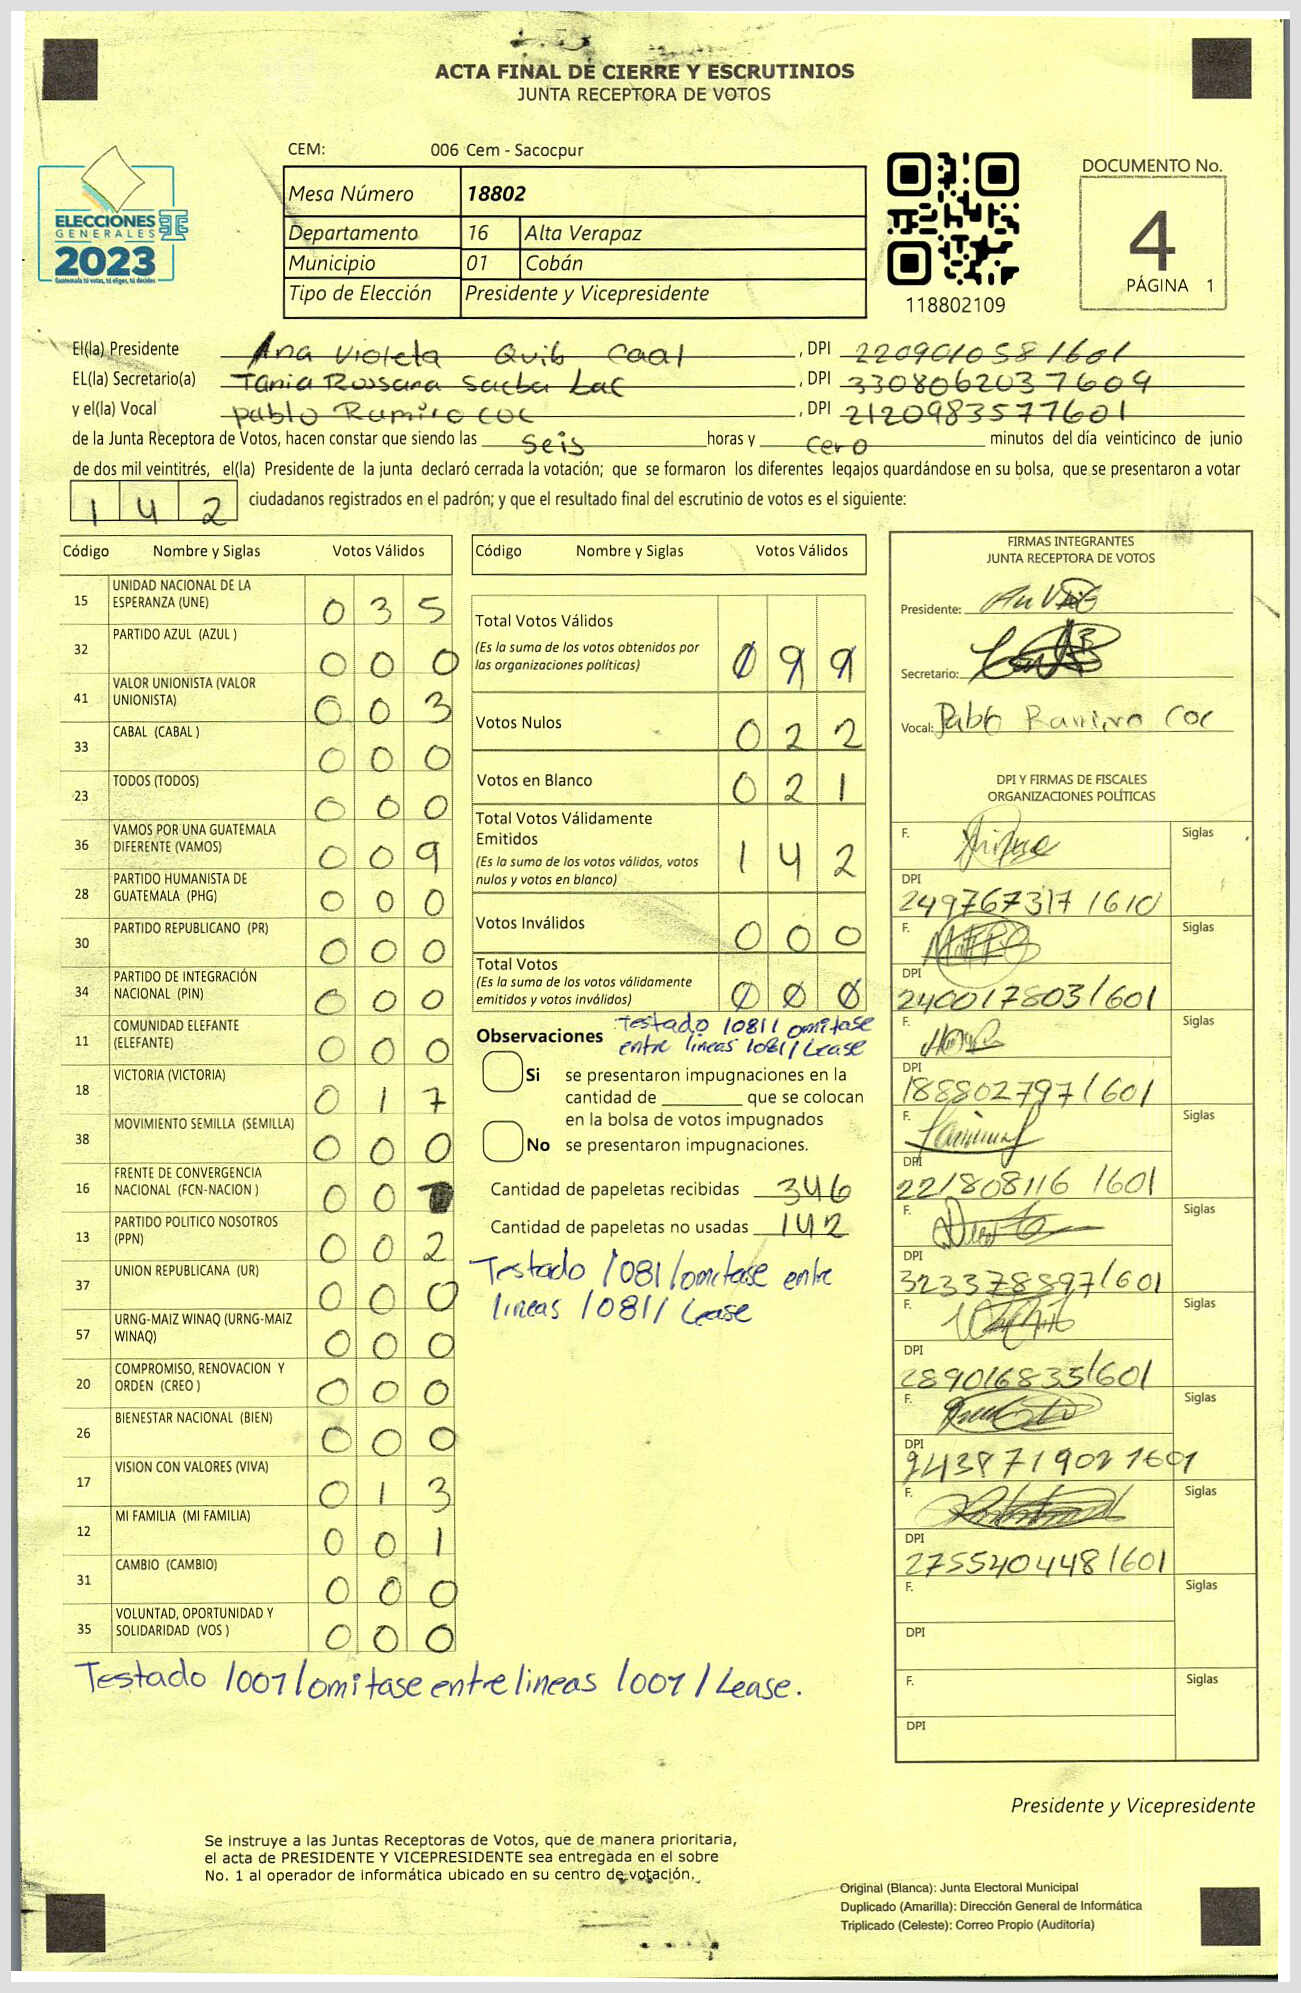 ACTA FINAL DE CIERRE Y ESCRUTINIOS
JUNTA RECEPTORA DE VOTOS
CEM: 006 Cem - Sacocpur
ELECCIONES
GENERALES
2023
Guatemala tú votas, tú eliges, tú decides
Mesa Número 18802
Departamento 16 Alta Verapaz
Municipio 01 Cobán
Tipo de Elección Presidente y Vicepresidente
118802109
DOCUMENTO No.
4
PÁGINA 1
El(la) Presidente Ana Violeta Quib Caal, DPI 2209010581601
EL(la) Secretario(a) Tania Rossana Sacba Lac, DPI 3308062037609
y el(la) Vocal Pablo Ramiro Coc, DPI 2120983577601
de la Junta Receptora de Votos, hacen constar que siendo las seis horas y cero minutos del día veinticinco de junio
de dos mil veintitrés, el(la) Presidente de la junta declaró cerrada la votación; que se formaron los diferentes legajos quardándose en su bolsa, que se presentaron a votar
142 ciudadanos registrados en el padrón; y que el resultado final del escrutinio de votos es el siguiente:
Código Nombre y Siglas Votos Válidos
15 UNIDAD NACIONAL DE LA ESPERANZA (UNE) 0 3 5
32 PARTIDO AZUL (AZUL ) 0 0 0
41 VALOR UNIONISTA (VALOR UNIONISTA) 0 0 3
33 CABAL (CABAL ) 0 0 0
23 TODOS (TODOS) 0 0 0
36 VAMOS POR UNA GUATEMALA DIFERENTE (VAMOS) 0 0 9
28 PARTIDO HUMANISTA DE GUATEMALA (PHG) 0 0 0
30 PARTIDO REPUBLICANO (PR) 0 0 0
34 PARTIDO DE INTEGRACIÓN NACIONAL (PIN) 0 0 0
11 COMUNIDAD ELEFANTE (ELEFANTE) 0 0 0
18 VICTORIA (VICTORIA) 0 1 7
38 MOVIMIENTO SEMILLA (SEMILLA) 0 0 0
16 FRENTE DE CONVERGENCIA NACIONAL (FCN-NACION ) 0 0
13 PARTIDO POLITICO NOSOTROS (PPN) 0 0 2
37 UNION REPUBLICANA (UR) 0 0 0
57 URNG-MAIZ WINAQ (URNG-MAIZ WINAQ) 0 0 0
20 COMPROMISO, RENOVACION Y ORDEN (CREO ) 0 0 0
26 BIENESTAR NACIONAL (BIEN) 0 0 0
17 VISION CON VALORES (VIVA) 0 1 3
12 MI FAMILIA (MI FAMILIA) 0 0 1
31 CAMBIO (CAMBIO) 0 0 0
35 VOLUNTAD, OPORTUNIDAD Y SOLIDARIDAD (VOS ) 0 0 0
Testado /001/omitase entre lineas /001/Lease.
Código Nombre y Siglas Votos Válidos
Total Votos Válidos 0 9 9
(Es la suma de los votos obtenidos por
las organizaciones políticas)
Votos Nulos 0 2 2
Votos en Blanco 0 2 1
Total Votos Válidamente
Emitidos 1 4 2
(Es la suma de los votos válidos, votos
nulos y votos en blanco)
Votos Inválidos 0 0 0
Total Votos 0 0 0
(Es la suma de los votos válidamente
emitidos y votos inválidos)
Observaciones Testado /081/ omitase
entre lineas /081/ Lease
Si se presentaron impugnaciones en la
cantidad de ________ que se colocan
en la bolsa de votos impugnados
No se presentaron impugnaciones.
Cantidad de papeletas recibidas 346
Cantidad de papeletas no usadas 142
Testado /081/omitase entre
lineas /081/ Lease
FIRMAS INTEGRANTES
JUNTA RECEPTORA DE VOTOS
Presidente:
Secretario:
Vocal: Pablo Ramiro Coc
DPI Y FIRMAS DE FISCALES
ORGANIZACIONES POLÍTICAS
F. Siglas
DPI
2497673171610
F. Siglas
DPI
2400178031601
F. Siglas
DPI
1888027971601
F. Siglas
DPI
221808116 1601
F. Siglas
DPI
3233788971601
F. Siglas
DPI
2890168351601
F. Siglas
DPI
9438719021601
F. Siglas
DPI
2755404481601
F. Siglas
DPI
F. Siglas
DPI
Presidente y Vicepresidente
Se instruye a las Juntas Receptoras de Votos, que de manera prioritaria,
el acta de PRESIDENTE Y VICEPRESIDENTE sea entregada en el sobre
No. 1 al operador de informática ubicado en su centro de votación.
Original (Blanca): Junta Electoral Municipal
Duplicado (Amarilla): Dirección General de Informática
Triplicado (Celeste): Correo Propio (Auditoría)